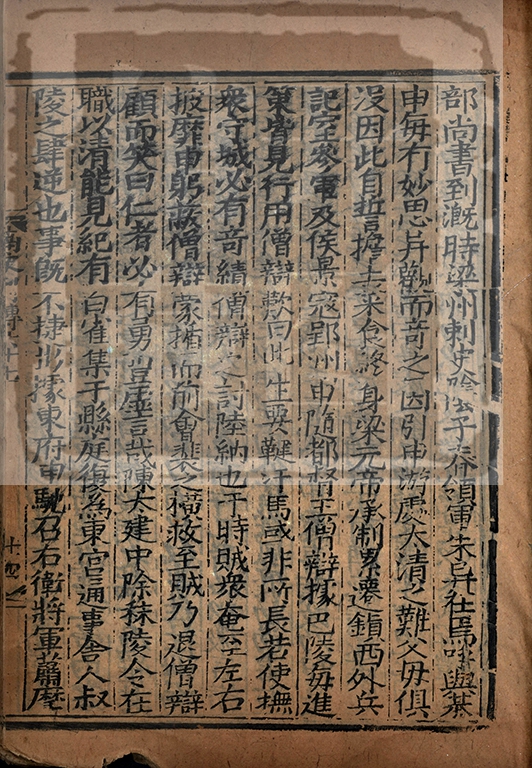 部尚書到溉時梁州刺史陰子春領軍朱异在焉呼與棊
申每有妙思异觀而奇之因引申游處太清之難父母俱
没因此自誓擔土菜食終身梁元帝承制累遷鎮西外兵
記室參軍及侯景寇郢州申隨都督王僧辯據巴陵每進
策皆見行用僧辯歎曰此生要鞬汗馬或非所長若使撫
衆守城必有奇績僧辯之討陸納也于時賊衆奄至左右
披靡申躬蔽僧辯蒙楯而前會裴之橫救至賊乃退僧辯
顧而笑曰仁者必有勇豈虛言哉陳太建中除秣陵令在
職以清能見紀有白雀集于縣庭復為東宮通事舍人叔
陵之肆逆也事既不捷出據東府申馳召右衛將軍蕭摩
傳六十七
十四